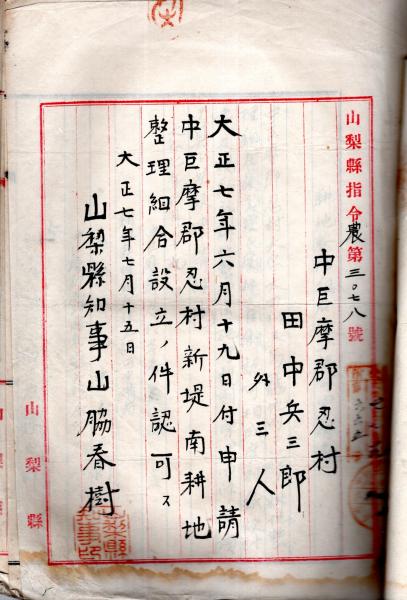 山梨縣指令農第三〇七八號
中巨摩郡忍村
田中兵三郎
外三人
大正七年六月十九日付申請
中巨摩郡忍村新堤南耕地
整理組合設立ノ件認可ス
大正七年七月十五日
山梨縣知事山脇春樹
山梨縣